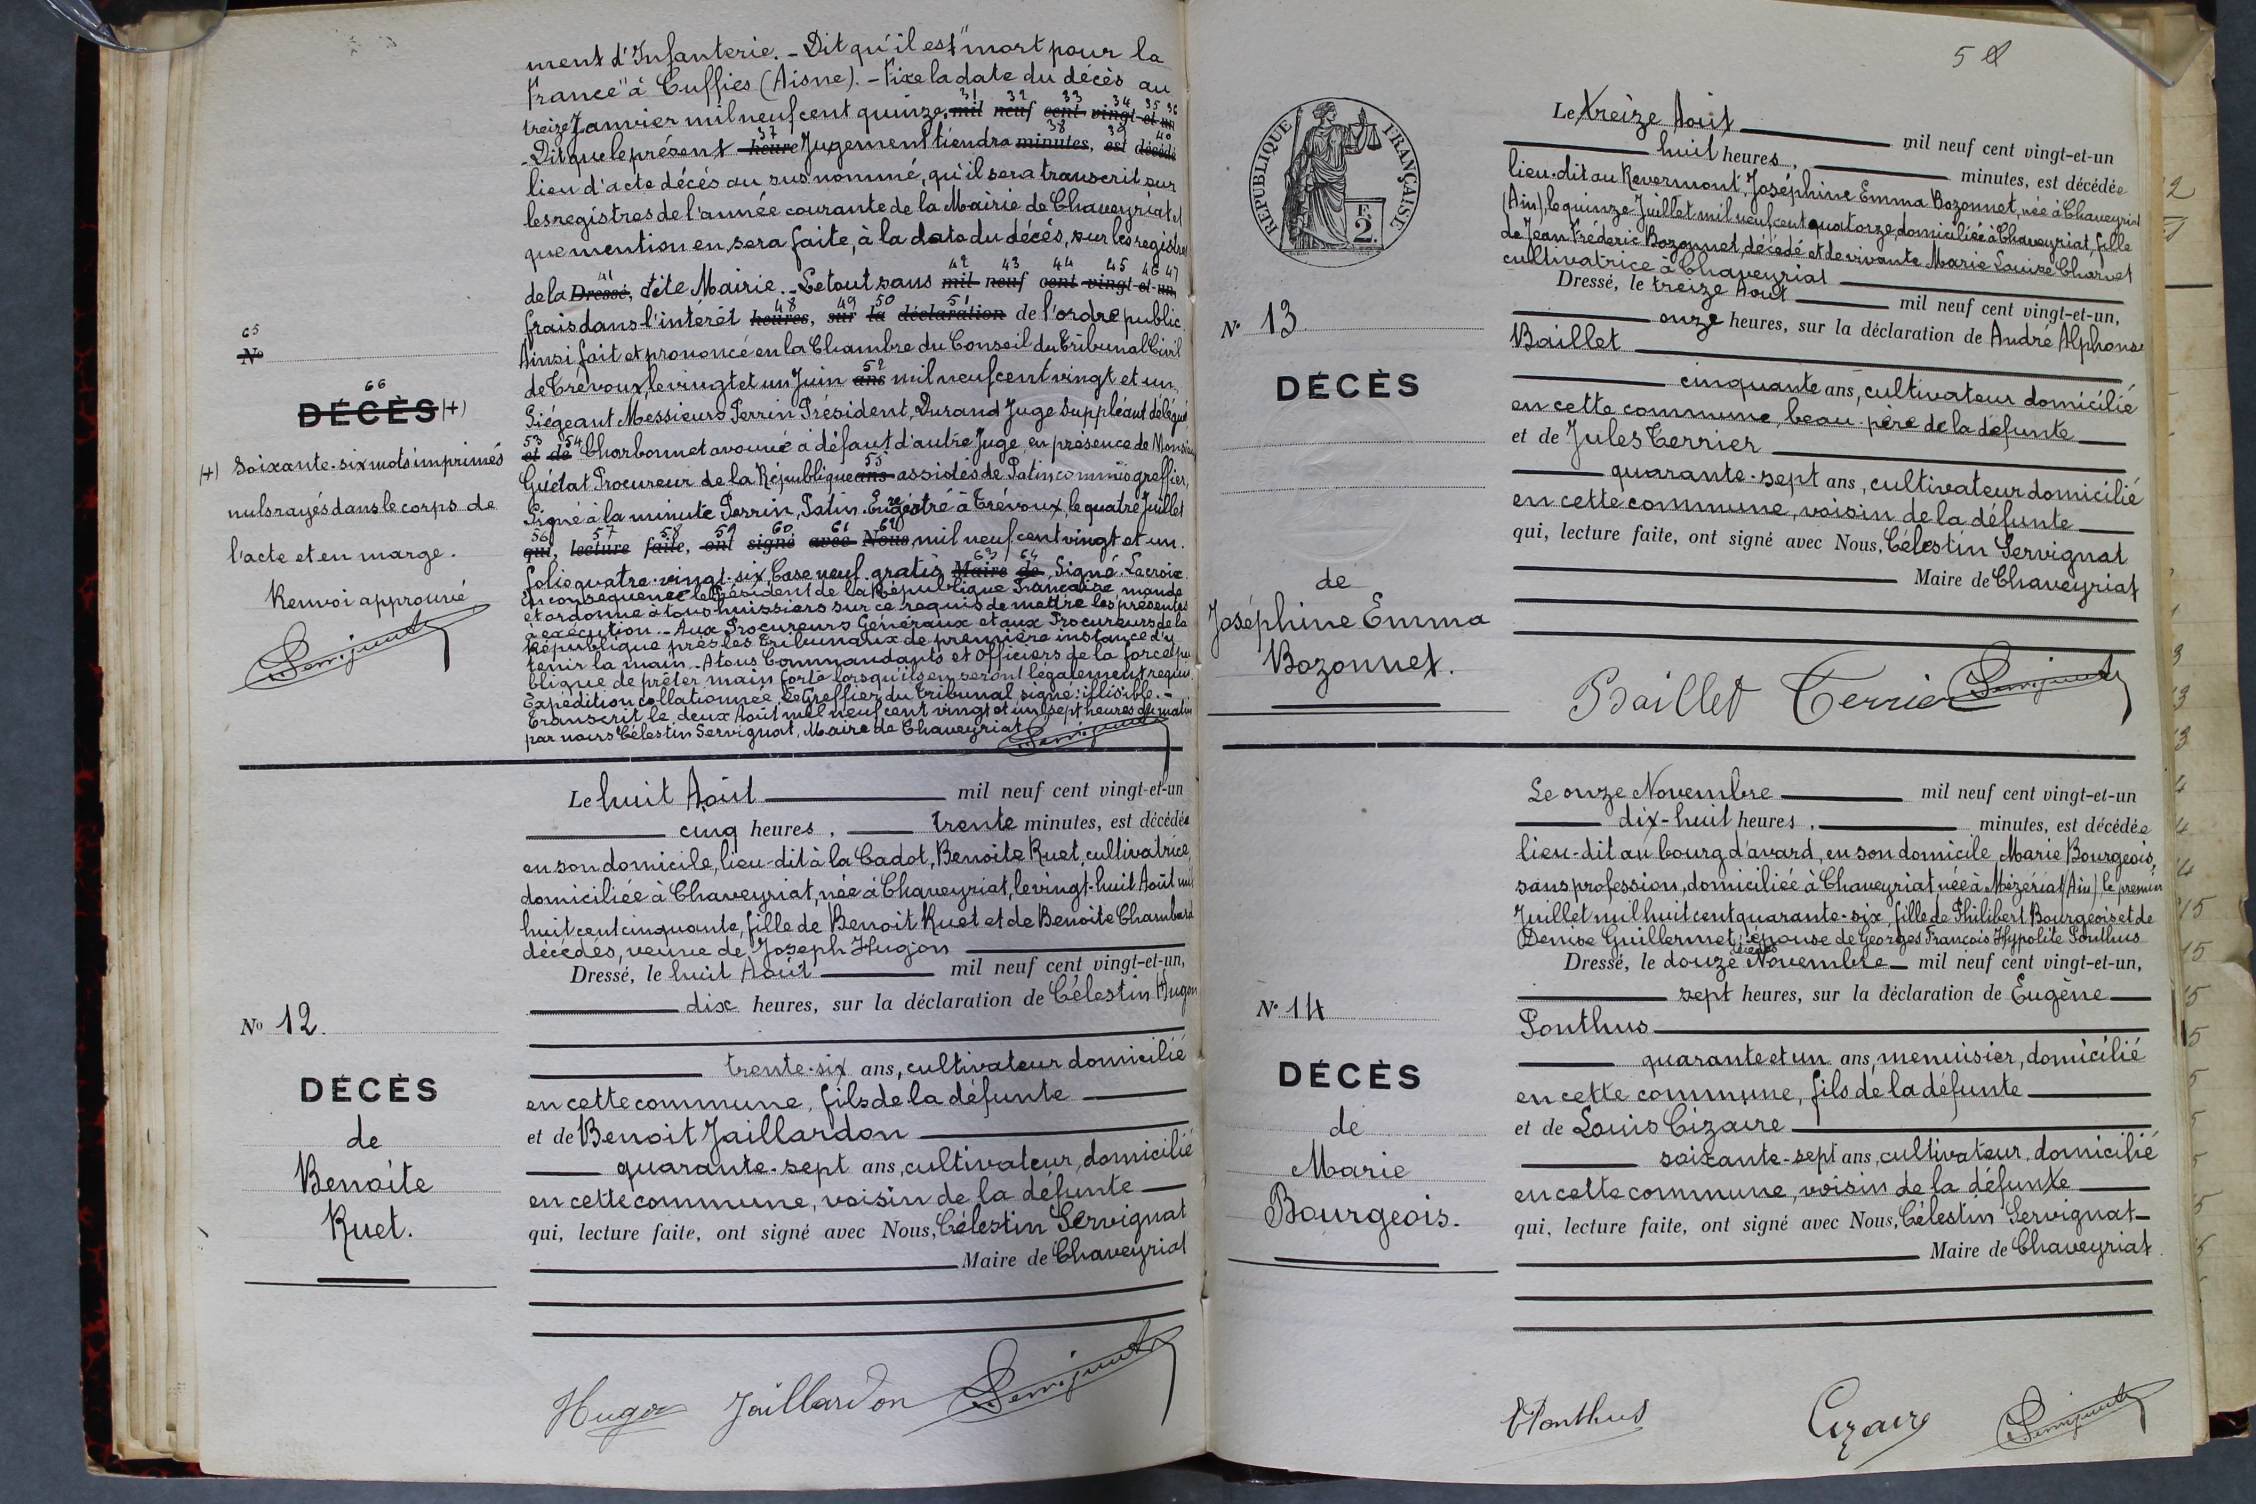 ment d'Infanterie. - Dit qu'il est "mort pour la
France" à Cuffies (Aisne). - Fixe la date du décès au
31 32 33 34 35 36
treize Janvier mil neuf cent quinze. mil neuf cent vingt-et-un
37 38 39 40
- Dit que le présent heure Jugement tiendra minutes, est décédé
lieu d'acte décès au sus nommé, qu'il sera transcrit sur
les registres de l'année courante de la Mairie de Chaveyriat et
que mention en sera faite, à la date du décès, sur les registres
41 42 43 44 45 46 47
de la Dressé, dite Mairie. - Le tout sans mil neuf cent vingt-et-un,
48 49 50 51
frais dans l'intérêt heures, sur la déclaration de l'ordre public.
Ainsi fait et prononcé en la Chambre du Conseil du Tribunal Civil
52
de Trévoux, le vingt et un Juin ans mil neuf cent vingt et un.
Siégeant Messieurs Perrin Président, Durand Juge Suppléant délégué
53 54
et de Charbonnet avoué à défaut d'autre Juge, en présence de Monsieur
55
Guédat Procureur de la République ans assistés de Patin commis greffier,
Signé à la minute Perrin, Patin. Enregistré à Trévoux, le quatre Juillet
56 57 58 59 60 61 62
qui, lecture faite, ont signé avec Nous, mil neuf cent vingt et un.
63 64
folio quatre-vingt-six, Case neuf. gratis Maire de Signé: Lacroix.
En conséquence le Président de la République Française, mande
et ordonne à tous huissiers sur ce requis de mettre les présentes
à exécution. - Aux Procureurs Généraux et aux Procureurs de la
République près les Tribunaux de première instance d'y
tenir la main. A tous Commandants et Officiers de la force pu
blique de prêter main forte lorsqu'ils en seront légalement requis.
Expédition collationnée. Le Greffier du Tribunal signé: illisible. -
Transcrit le deux Août mil neuf cent vingt et un, sept heures du matin
par nous Célestin Servignat, Maire de Chaveyriat
65
No
66
DÉCÈS (+)
(+) Soixante-six mots imprimés
nuls rayés dans le corps de
l'acte et en marge.
Renvoi approuvé
Servignat
No 12.
DÉCÈS
de
Benoite
Ruet.
Le huit Août mil neuf cent vingt-et-un
cinq heures, trente minutes, est décédée
en son domicile, lieu-dit à la Cadot, Benoite Ruet, cultivatrice,
domiciliée à Chaveyriat, née à Chaveyriat, le vingt-huit Août mil
huit cent cinquante, fille de Benoit Ruet et de Benoite Chambard
décédés, veuve de Joseph Hugon
Dressé, le huit Août mil neuf cent vingt-et-un,
dix heures, sur la déclaration de Célestin Hugon
trente-six ans, cultivateur domicilié
en cette commune, fils de la défunte
et de Benoit Jaillardon
quarante-sept ans, cultivateur, domicilié
en cette commune, voisin de la défunte
qui, lecture faite, ont signé avec Nous, Célestin Servignat
Maire de Chaveyriat
Hugon Jaillardon Servignat
5
RÉPUBLIQUE FRANÇAISE
F.
2.
No 13
DÉCÈS
de
Joséphine Emma
Bozonnet.
Le treize Août mil neuf cent vingt-et-un
huit heures, minutes, est décédée
lieu-dit au Revermont, Joséphine Emma Bozonnet, née à Chaveyriat
(Ain), le quinze Juillet mil neuf cent quatorze, domiciliée à Chaveyriat, fille
de Jean Fréderic Bozonnet, décédé et de vivante Marie Louise Charvet
cultivatrice à Chaveyriat
Dressé, le treize Août mil neuf cent vingt-et-un,
onze heures, sur la déclaration de André Alphonse
Baillet
cinquante ans, cultivateur domicilié
en cette commune, beau-père de la défunte
et de Jules Terrier
quarante-sept ans, cultivateur domicilié
en cette commune, voisin de la défunte
qui, lecture faite, ont signé avec Nous, Célestin Servignat
Maire de Chaveyriat
Baillet Terrier Servignat
No 14
DÉCÈS
de
Marie
Bourgeois.
Le onze Novembre mil neuf cent vingt-et-un
dix-huit heures, minutes, est décédée
lieu-dit au bourg d'avard, en son domicile, Marie Bourgeois,
sans profession, domiciliée à Chaveyriat née à Mézériat (Ain) le premier
Juillet mil huit cent quarante-six, fille de Philibert Bourgeois et de
Denise Guillermet, épouse de Georges François Hypolite Ponthus
Dressé, le douze Novembre mil neuf cent vingt-et-un,
sept heures, sur la déclaration de Eugène
Ponthus
quarante et un ans, menuisier, domicilié
en cette commune, fils de la défunte
et de Louis Cizaire
soixante-sept ans, cultivateur, domicilié
en cette commune, voisin de la défunte
qui, lecture faite, ont signé avec Nous, Célestin Servignat
Maire de Chaveyriat
EPonthus Cizaire Servignat